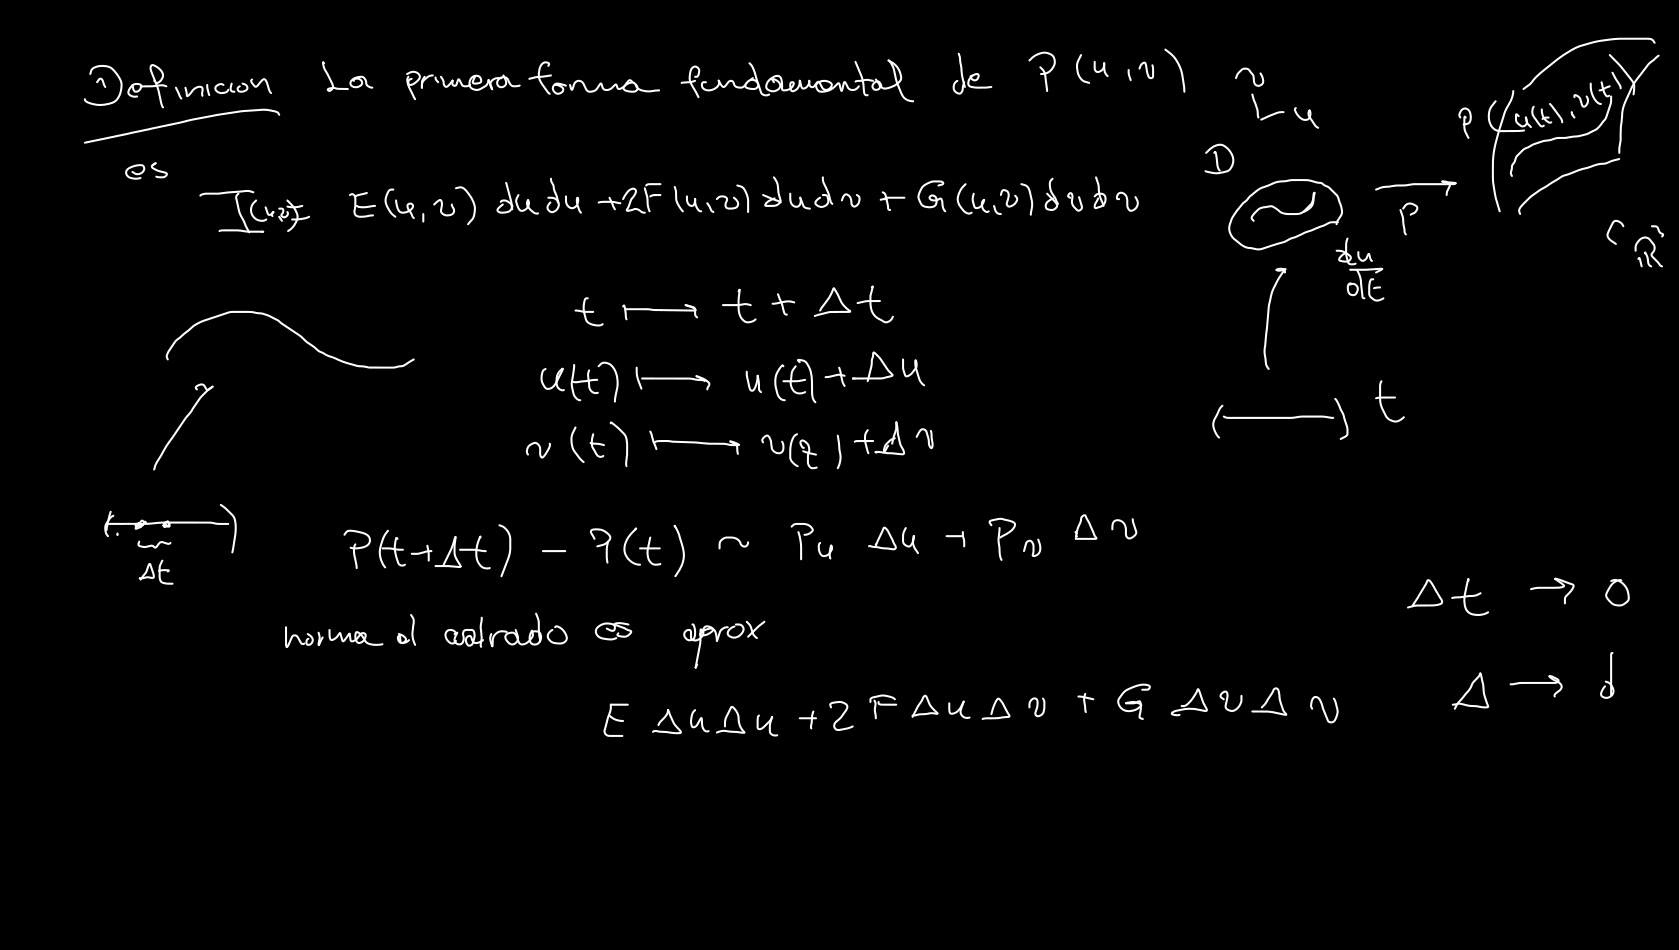 Definicion La primera forma fundamental de P(u,v)
es
I(u,v)= E(u,v) du du + 2F(u,v) du dv + G(u,v) dv dv
v
u
D
P
P(u(t),v(t))
⊂ ℝ³
du
dt
t
t ↦ t + Δt
u(t) ↦ u(t) + Δu
v(t) ↦ v(t) + Δv
Δt
P(t+Δt) − P(t) ~ Pu Δu + Pv Δv
norma al cuadrado es aprox
E Δu Δu + 2 F Δu Δv + G Δv Δv
Δt → 0
Δ → d